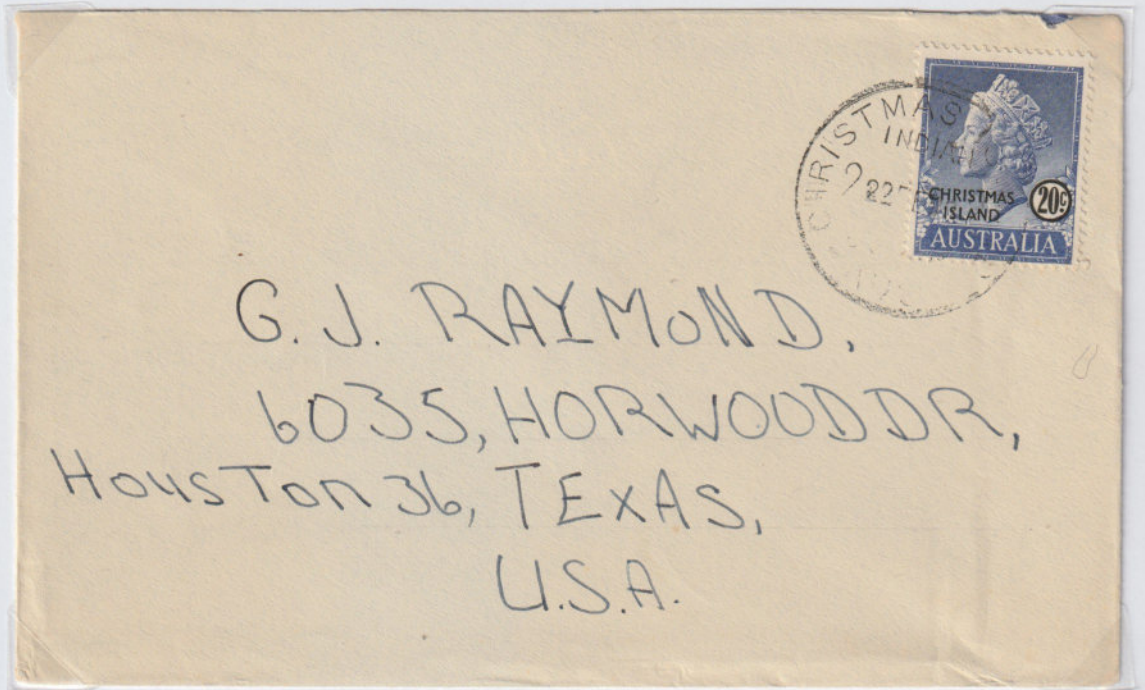 CHRISTMAS
INDIAN
22
CHRISTMAS
ISLAND
20c
AUSTRALIA
G. J. RAYMOND,
6035, HORWOOD DR,
Houston 36, TEXAS,
U.S.A.